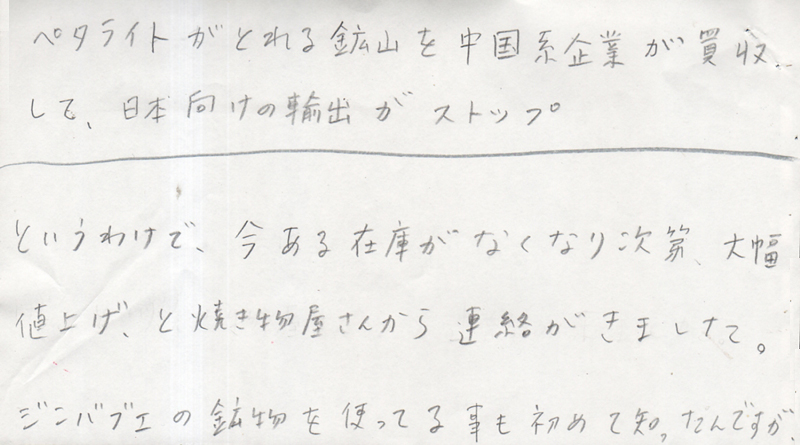 ペタライトがとれる鉱山を中国系企業が買収
して、日本向けの輸出がストップ
というわけで、今ある在庫がなくなり次第、大幅
値上げ、と焼き物屋さんから連絡がきました。
ジンバブエの鉱物を使ってる事も初めて知ったんですが、